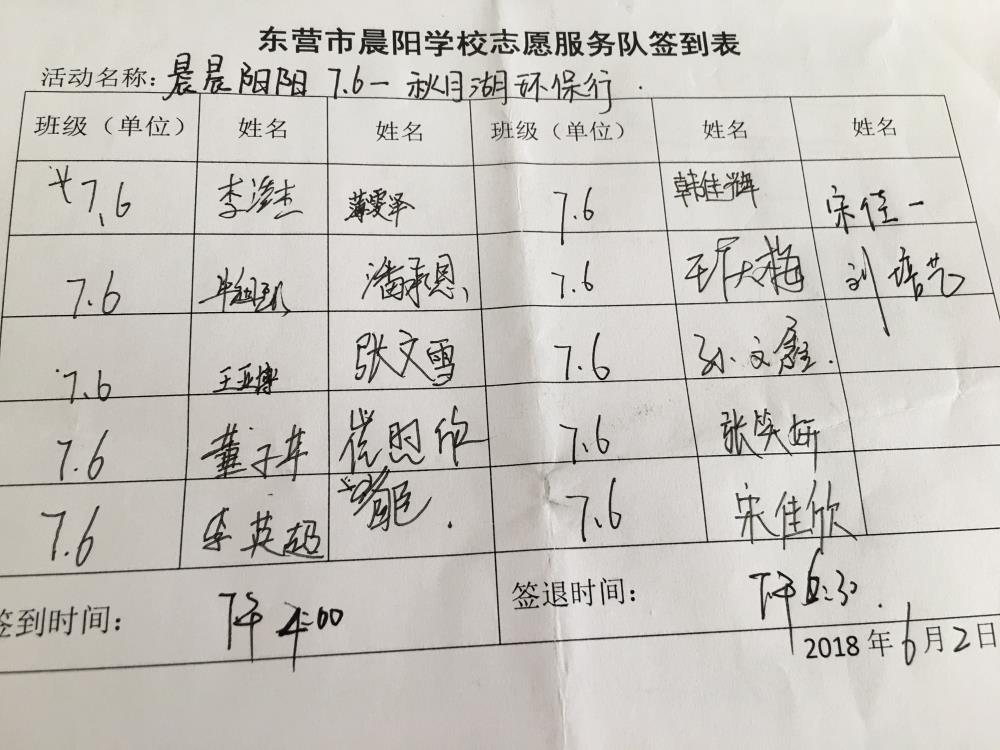 东营市晨阳学校志愿服务队签到表
活动名称：晨晨阳阳 7.6一秋月湖环保行.
班级（单位） 姓名 姓名 班级（单位） 姓名 姓名
7.6 李 薄雯泽 7.6 韩佳辉 宋佳一
7.6 潘承恩 7.6 梅 刘培艺
7.6 王亚博 张文雪 7.6 孙文
7.6 董子 崔照欣 7.6 张笑妍
7.6 李英超 7.6 宋佳欣
签到时间： 下午 4:00 签退时间： 下午6:30.
2018年6月2日